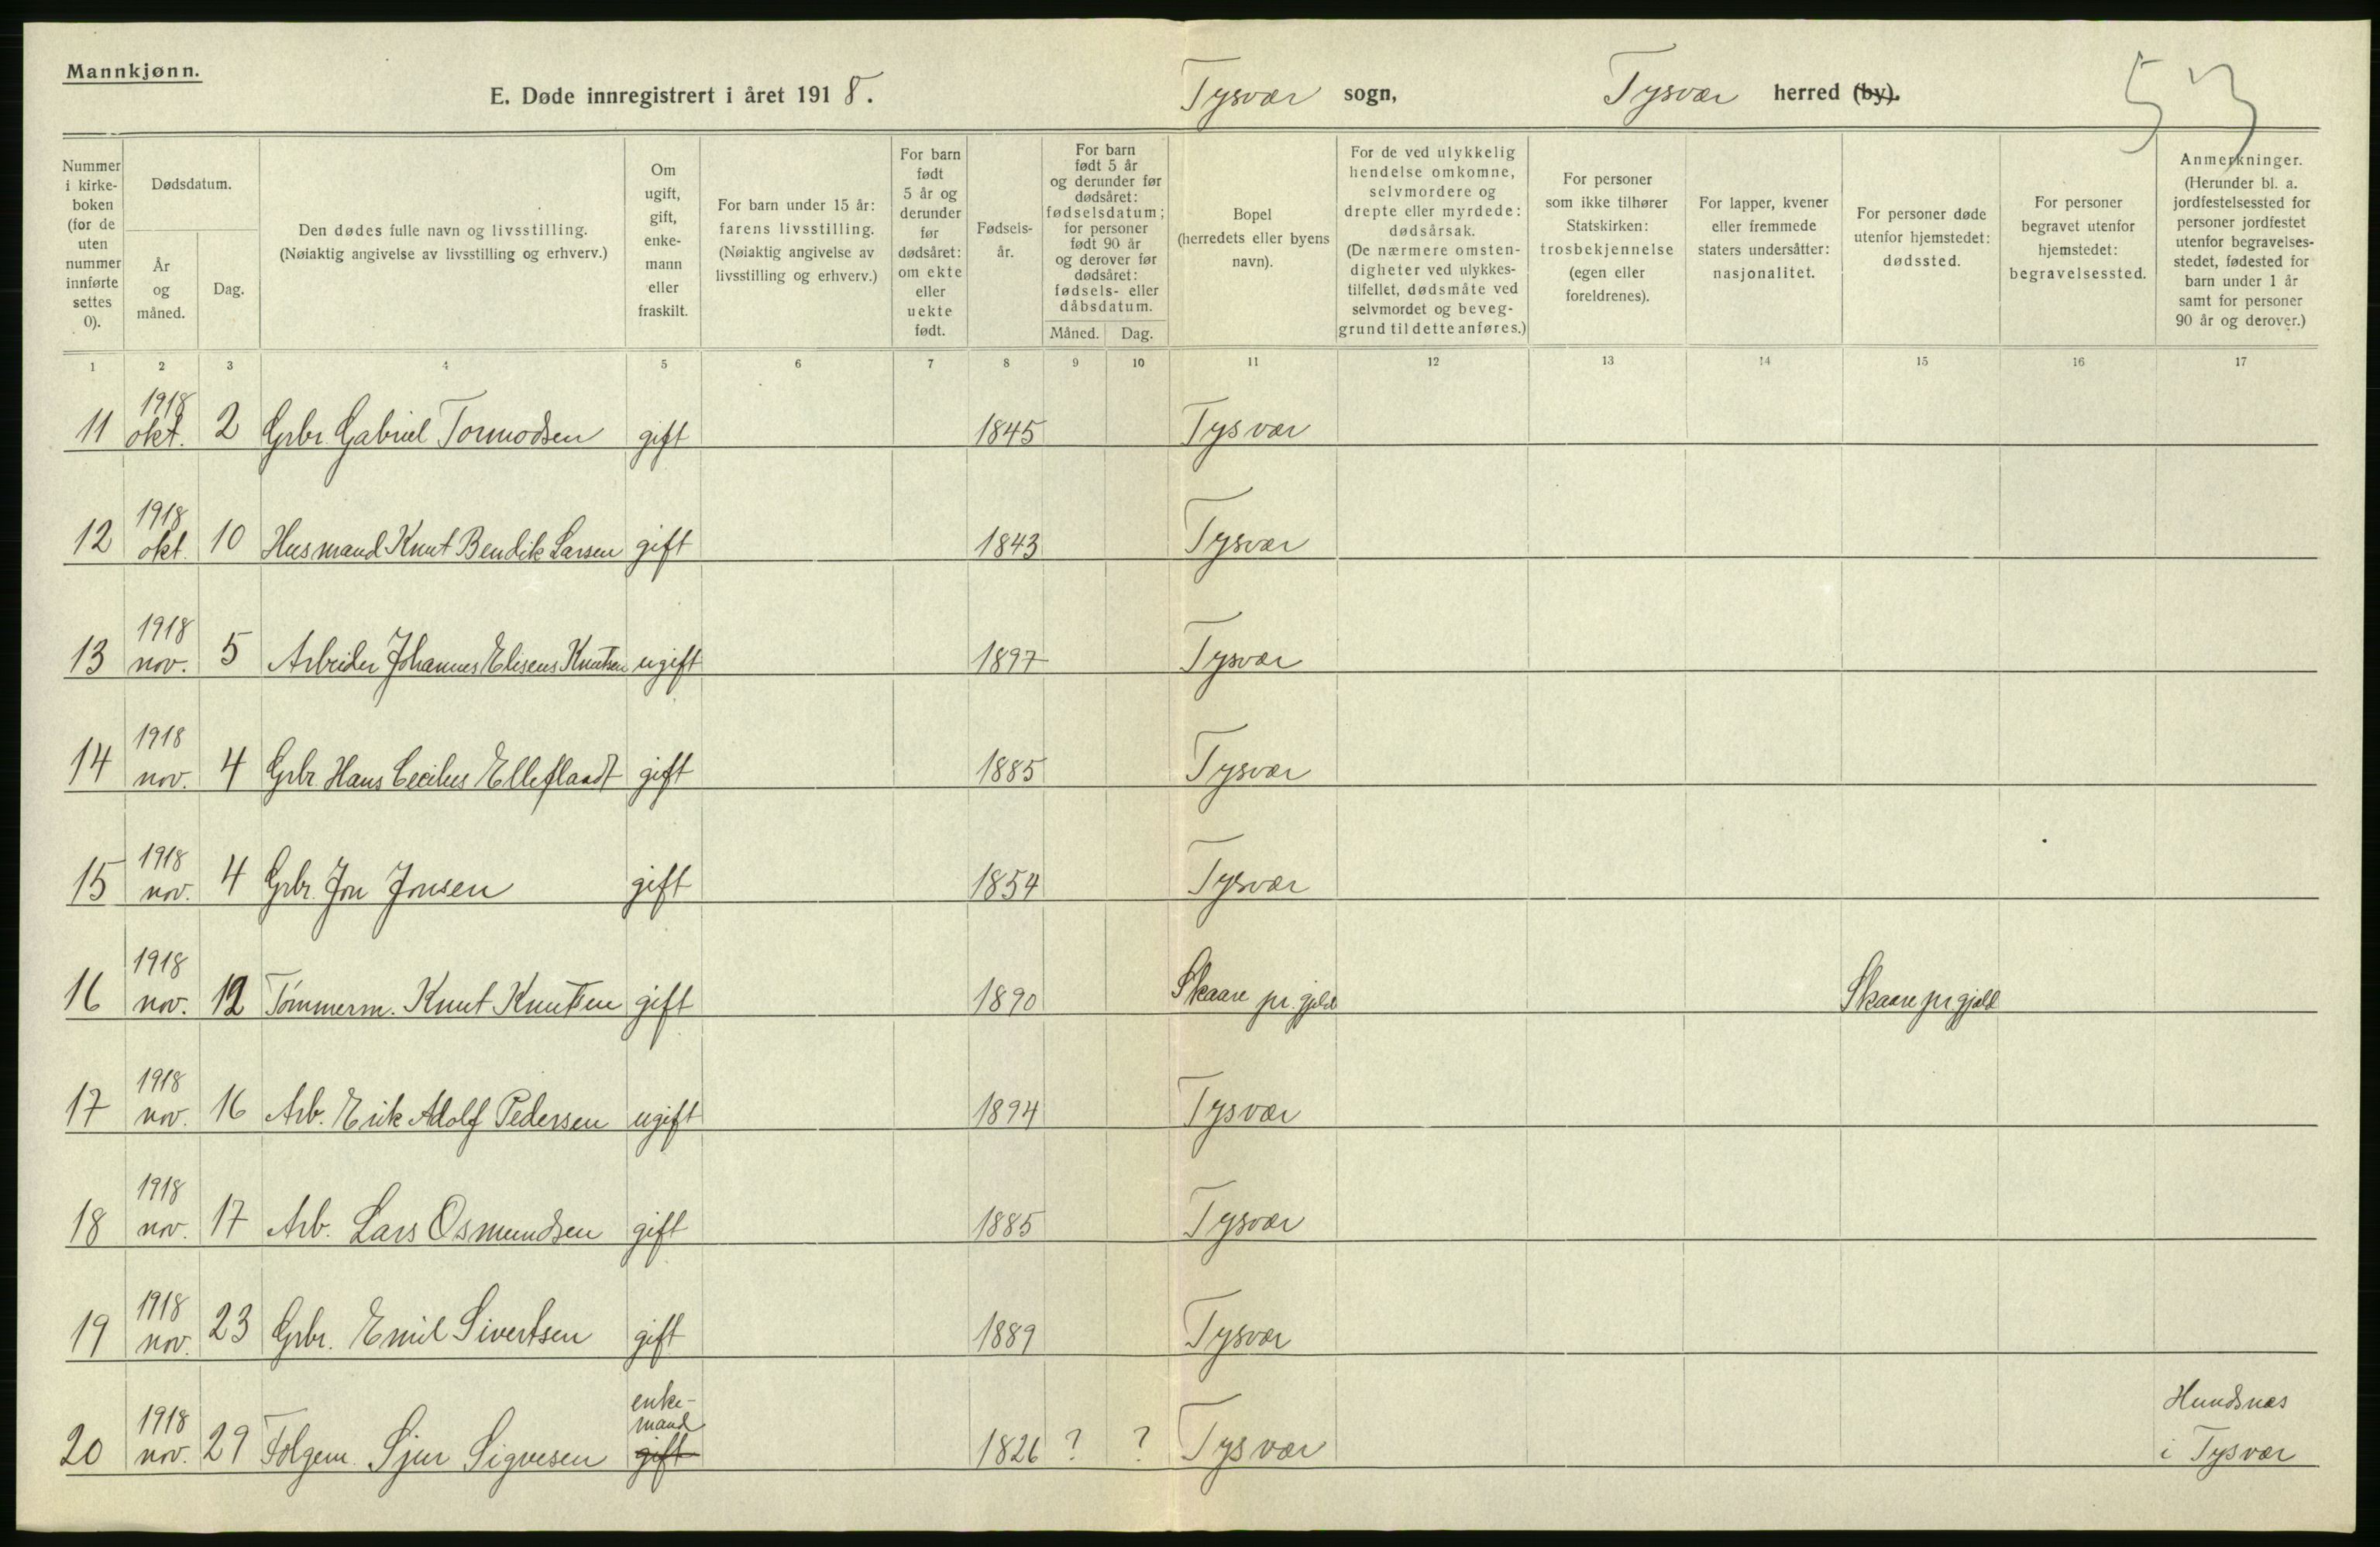 Mannkjønn.
E. Døde innregistrert i året 1918. Tysvær sogn, Tysvær herred (by). 53
Nummer i kirkeboken (for de uten nummer innførte settes 0).
Dødsdatum.
År og måned.
Dag.
Den dødes fulle navn og livsstilling.
(Nøiaktig angivelse av livsstilling og erhverv.)
Om ugift, gift, enkemann eller fraskilt.
For barn under 15 år: farens livsstilling. (Nøiaktig angivelse av livsstilling og erhverv.)
For barn født 5 år og derunder før dødsåret: om ekte eller uekte født.
Fødselsår.
For barn født 5 år og derunder før dødsåret: fødselsdatum; for personer født 90 år og derover før dødsåret: fødsels- eller dåbsdatum.
Måned. Dag.
Bopel (herredets eller byens navn).
For de ved ulykkelig hendelse omkomne, selvmordere og drepte eller myrdede: dødsårsak. (De nærmere omstendigheter ved ulykkestilfellet, dødsmåte ved selvmordet og beveggrund til dette anføres.)
For personer som ikke tilhører Statskirken: trosbekjennelse (egen eller foreldrenes).
For lapper, kvener eller fremmede staters undersåtter: nasjonalitet.
For personer døde utenfor hjemstedet: dødssted.
For personer begravet utenfor hjemstedet: begravelsessted.
Anmerkninger. (Herunder bl. a. jordfestelsessted for personer jordfestet utenfor begravelsesstedet, fødested for barn under 1 år samt for personer 90 år og derover.)
1 2 3 4 5 6 7 8 9 10 11 12 13 14 15 16 17
11 1918 okt. 2 Grbr. Gabriel Tormodsen gift 1845 Tysvær
12 1918 okt. 10 Husmand Knut Bendik Larsen gift 1843 Tysvær
13 1918 nov. 5 Arbeider Johannes Eliseus Knutsen ugift 1897 Tysvær
14 1918 nov. 4 Grbr. Hans Cecilius gift 1885 Tysvær
15 1918 nov. 4 Grbr. Jon Jonsen gift 1854 Tysvær
16 1918 nov. 12 Tømmerm. Knut Knutsen gift 1890 Skaare pr. gjeld Skaare pr gjeld
17 1918 nov. 16 Arb. Erik Adolf Pedersen ugift 1894 Tysvær
18 1918 nov. 17 Arb. Lars Osmundsen gift 1885 Tysvær
19 1918 nov. 23 Grbr. Emil Sivertsen gift 1889 Tysvær
20 1918 nov. 29 Folgem. Sjur Sigvesen enkemand gift 1826 ? ? Tysvær Hundsnes i Tysvær